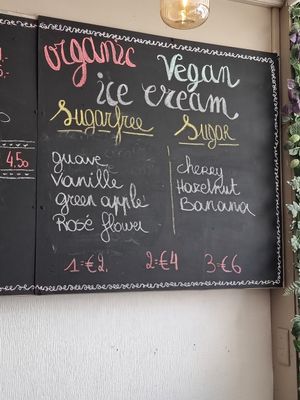 organic Vegan
ice cream
Sugarfree Sugar
guave cherry
Vanille Hazelnut
green apple Banana
Rosé flower
1=€2. 2=€4 3=€6
4.50